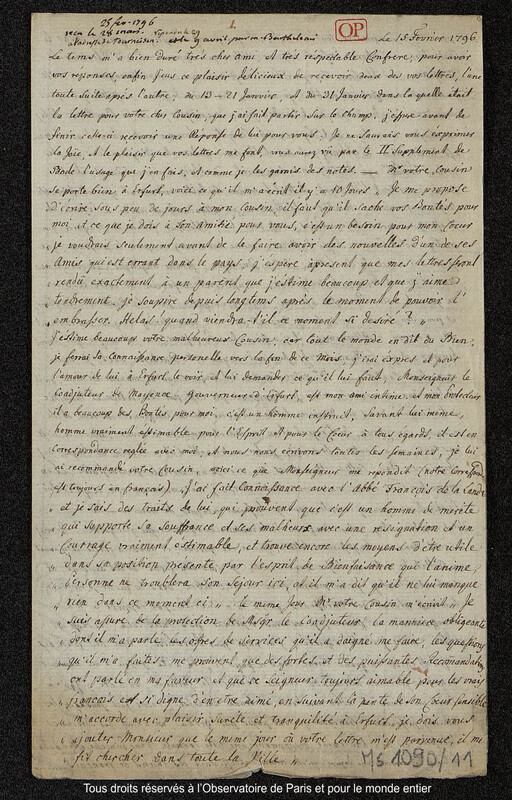 25 fev. 1796
1.
OP
Le 15 Fevrier 1796
reçu le 28 mars.
Le tems m'a bien duré très cher ami et très réspectable Confrere, pour avoir
vos réponses, enfin j'eus ce plaisir delicieux de recevoir deux de vos lettres, l'une
toute suite après l'autre, du 13-21 Janvier, et du 31 Janvier dans la quelle étoit
la lettre pour votre cher Cousin, que j'ai fait partir sur le champ, j'espere avant de
finir celle-ci recevoir une Réponse de lui pour vous. Je ne saurais vous exprimer
la Joie, et le plaisir que vos lettres me font, vous aurez vû par le II Supplement de
Bode l'usage que j'en fais, et comme je les garnis des notes. — Mr votre Cousin
se porte bien à Erfurt, voici ce qu'il m'a écrit il y a 10 Jours, Je me propose
d'écrire sous peu de jours à mon Cousin, il faut qu'il sache vos bontés pour
moi, et ce que je dois à son Amitié pour vous, c'est un besoin pour mon Coeur
je voudrais seulement avant de le faire avoir des nouvelles d'un de ses
Amis qui est errant dans le pays; j'espère àpresent que mes lettres seront
rendu exactement à un parent que j'éstime beaucoup et que j'aime
tendrement, je soupire depuis longtems après le moment de pouvoir l'
embrasser. Helas! quand viendra-t'il ce moment si desiré? "
J'éstime beaucoup votre malheureux Cousin, car tout le monde en dit du Bien,
je ferai sa connaissance personelle vers la fin de ce mois, j'irai exprès et pour
l'amour de lui à Erfurt le voir, et lui demander ce qu'il lui faut, Monseigneur le
Coadjuteur de Mayence, Gouverneur d'Erfurt, est mon ami intime, et mon protecteur
il a beaucoup des Bontés pour moi, c'est un homme instruit, Savant lui même,
homme vraiment estimable pour l'Esprit et pour le Coeur à tous egards, il est en
correspondance reglée avec moi, et nous nous écrivons toutes les semaines, je lui
ai recommandé votre Cousin, voici ce que Monseigneur me repondit (notre Corresp
est toujours en français) "J'ai fait Connoissance avec l'Abbé François de la Lande
et je sais des traits de lui, qui prouvent que c'est un homme de merite
qui supporte sa Souffrance et ses malheurs avec une résignation et un
Courrage vraiment estimable, et trouve encore les moyens d'être utile
dans sa position présente par l'esprit de Bienfaisance qui l'anime,
Personne ne troublera son Sejour ici, et il m'a dit qu'il ne lui manque
rien dans ce moment ci" le meme jour Mr votre Cousin m'écrivit "Je
suis assuré de la protection de Msgr. le Coadjuteur, la manniere obligeante
dont il m'a parlé les offres de services qu'il a daigné me faire, les questions
qu'il m'a faites, me prouvent que des fortes et des puissantes Recomandations
ont parlé en ma faveur et que ce Seigneur toujours aimable pour les vrais
français est si digne d'en être aimé, en suivant la pente de son Coeur sensible
m'accorde avec plaisir sureté et tranquilité à Erfurt, je dois vous
ajouter Monsieur que le même jour où votre lettre m'est parvenue, il me
fit chercher dans toute la Ville "
Ms 1090/11
Tous droits réservés à l'Observatoire de Paris et pour le monde entier